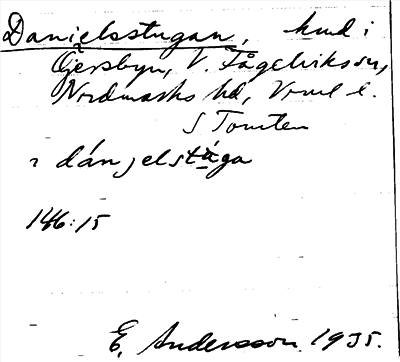 Danielsstugan, hmd i
Gersbyn, V. Fågelviks sn,
Nordmarks hd, Vrml l.
S Tomten
dánjelstúga
146:15
E. Andersson 1935.